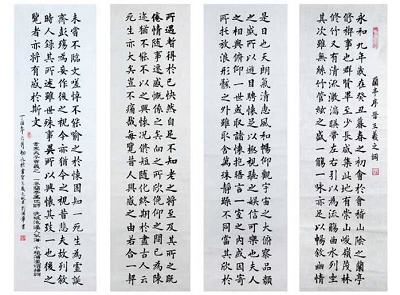 蘭亭序 晉王羲之撰
永和九年歲在癸丑暮春之初會於會稽山陰之蘭亭
修禊事也群賢畢至少長咸集此地有崇山峻嶺茂林
修竹又有清流激湍暎帶左右引以為流觴曲水列坐
其次雖無絲竹管弦之盛一觴一詠亦足以暢敘幽情
是日也天朗氣清惠風和暢仰觀宇宙之大俯察品類
之盛所以遊目騁懷足以極視聽之娛信可樂也夫人
之相與俯仰一世或取諸懷抱悟言一室之內或因寄
所託放浪形骸之外雖趣舍萬殊靜躁不同當其欣於
所遇暫得於己快然自足不知老之將至及其所之既
倦情隨事遷感慨係之矣向之所欣俛仰之間已為陳
迹猶不能不以之興懷況修短隨化終期於盡古人云
死生亦大矣豈不痛哉每覽昔人興感之由若合一契
未嘗不臨文嗟悼不能喻之於懷固知一死生為虛誕
齊彭殤為妄作後之視今亦猶今之視昔悲夫故列敘
時人錄其所述雖世殊事異所以興懷其致一也後之
覽者亦將有感於斯文